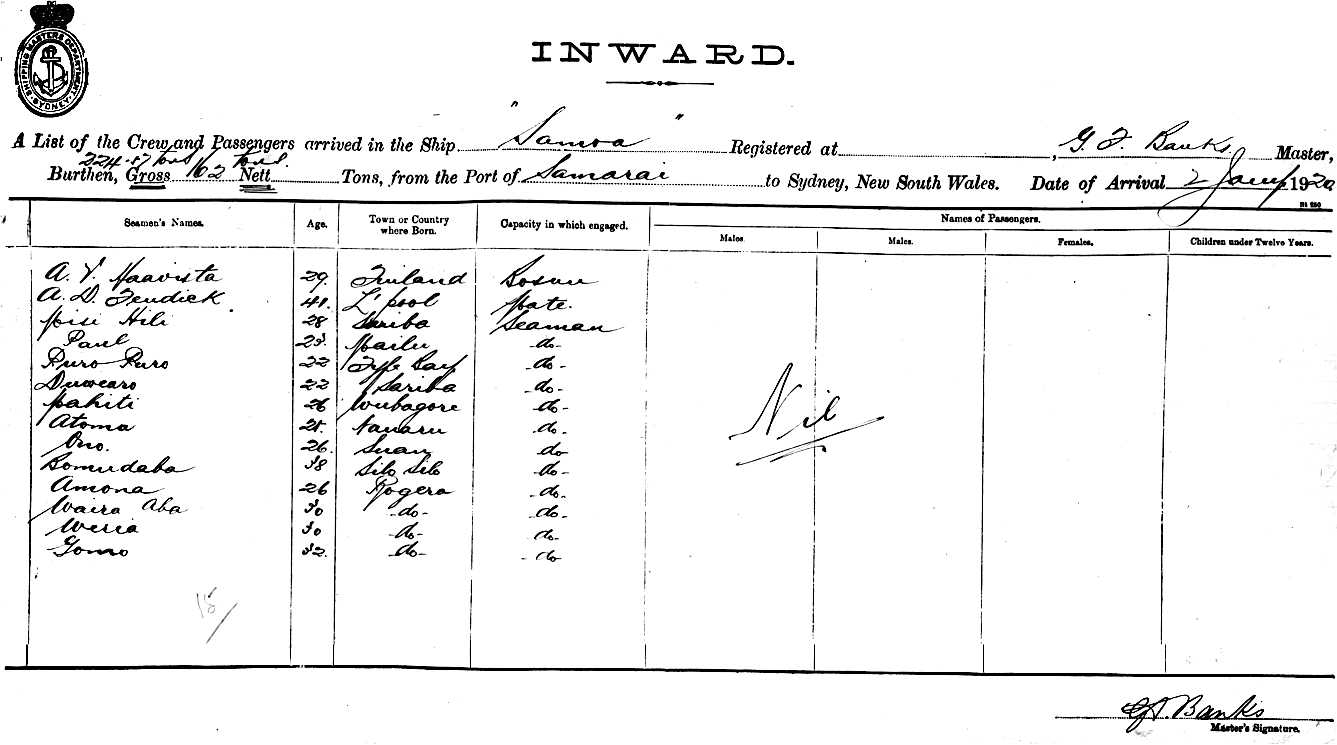 SHIPPING MASTERS DEPARTMENT SYDNEY
INWARD.
A List of the Crew and Passengers arrived in the Ship "Samoa" Registered at , G. F. Banks Master,
Burthen, Gross 162 tons Nett Tons, from the Port of Samarai to Sydney, New South Wales. Date of Arrival 2 Jany 1920
Seamen's Names. Age. Town or Country where Born. Capacity in which engaged. Names of Passengers.
Males. Males. Females. Children under Twelve Years.
A. V. Haavista 29. Finland Bosun
A. D. Fendick 41. L'pool Mate.
Misi Hili 28 Sariba Seaman
Paul 23. Mailu -do-
Puro Puro 22 Fyfe Bay -do-
Duwearo 22 Sariba -do-
Mahiti 26 Wubagore -do-
Atoma 25. -do-
Ono. 26. Suau do
Bomudaba 38 Silo Silo -do-
Amona 26 Rogera -do-
Waira Aba 30 -do- -do-
Weria 30 -do- do-
Gomo 32. -do- -do
Nil
15
G. F. Banks
Master's Signature.